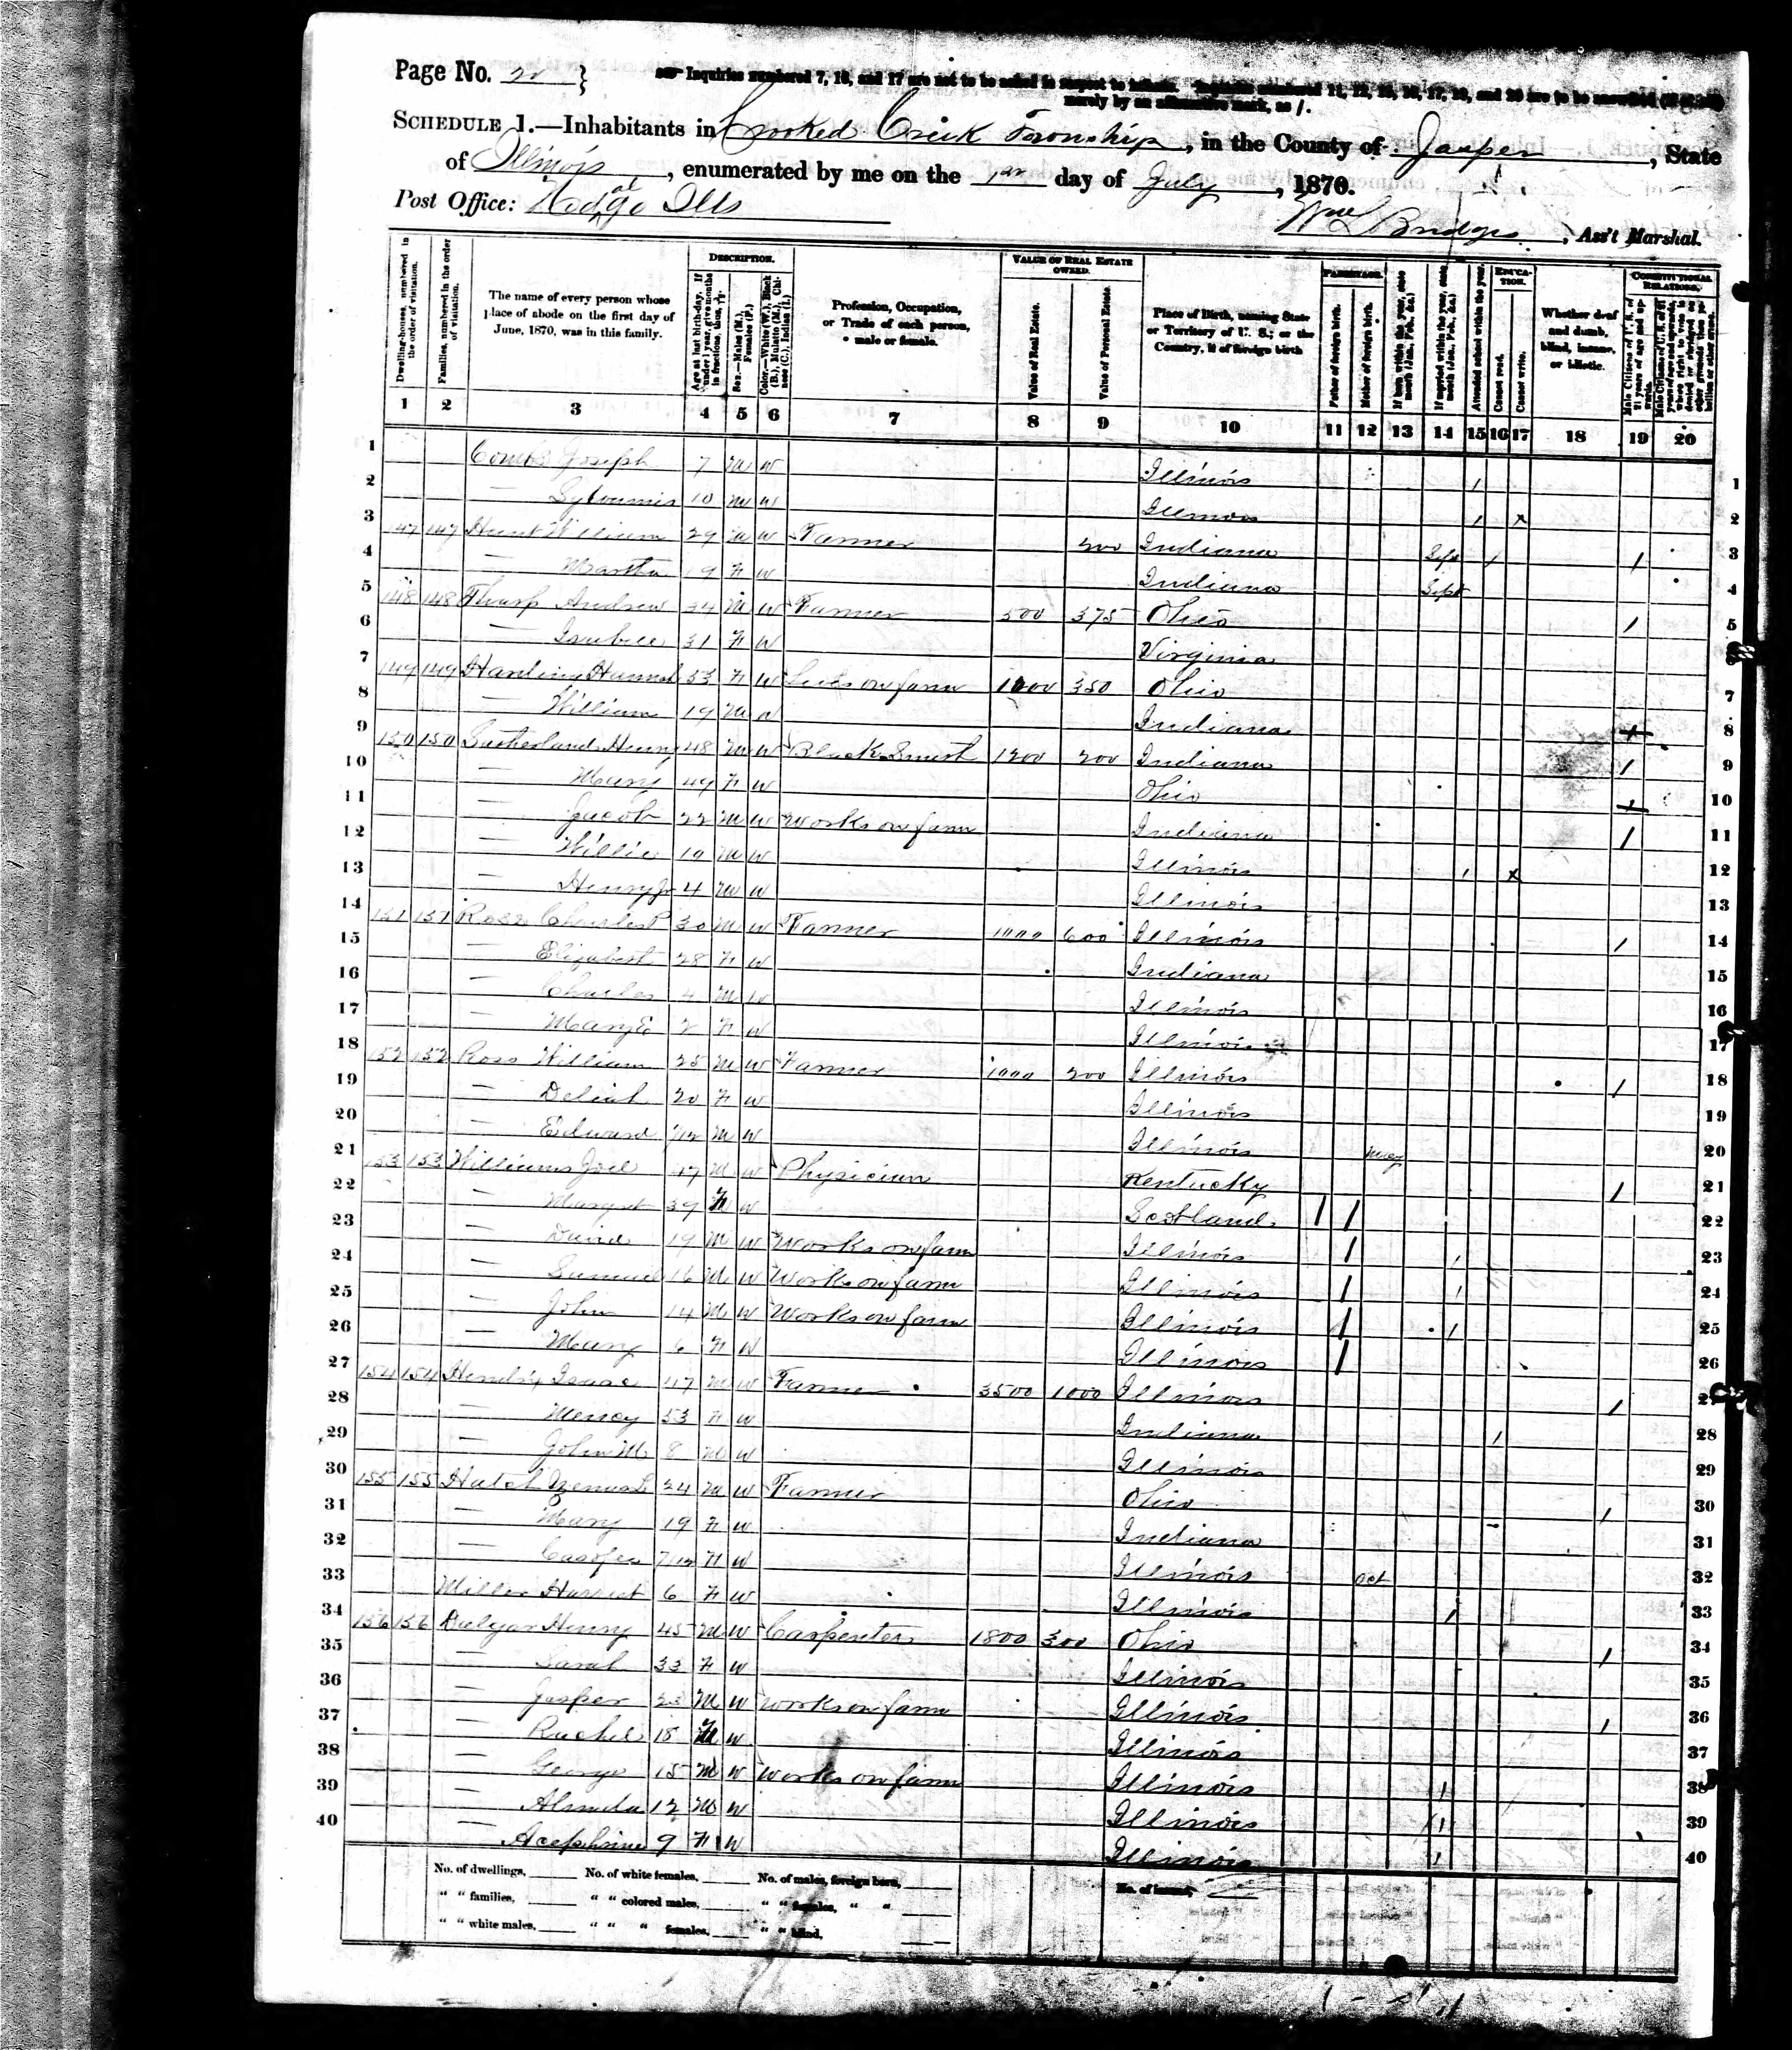 Page No. 22 }
Inquiries numbered 7, 16, and 17 are not to be asked in respect to infants. Inquiries numbered 11, 12, 15, 16, 17, 19, and 20 are to be answered (if at all)
merely by an affirmative mark, as /.
SCHEDULE 1.—Inhabitants in Crooked Creek Township, in the County of Jasper, State
of Illinois, enumerated by me on the 1st day of July, 1870.
Post Office: Ills
Wm L Bridges, Ass't Marshal.
DESCRIPTION. VALUE OF REAL ESTATE OWNED. PARENTAGE. EDUCATION. CONSTITUTIONAL RELATIONS.
Dwelling-houses, numbered in the order of visitation.
Families, numbered in the order of visitation.
The name of every person whose place of abode on the first day of June, 1870, was in this family.
Age at last birth-day. If under 1 year, give months in fractions, thus,
Sex.—Males (M.), Females (F.)
Color.—White (W.), Black (B.), Mulatto (M.), Chinese (C.), Indian (I.)
Profession, Occupation, or Trade of each person, male or female.
Value of Real Estate.
Value of Personal Estate.
Place of Birth, naming State or Territory of U. S.; or the Country, if of foreign birth
Father of foreign birth.
Mother of foreign birth.
If born within the year, state month (Jan., Feb., &c.)
If married within the year, state month (Jan., Feb., &c.)
Attended school within the year.
Cannot read.
Cannot write.
Whether deaf and dumb, blind, insane, or idiotic.
Male Citizens of U. S. of 21 years of age and upwards.
1 2 3 4 5 6 7 8 9 10 11 12 13 14 15 16 17 18 19 20
1 Combs Joseph 7 M W Illinois / 1
2 — 10 M W Illinois / x 2
3 147 147 Hunt William 29 M W Farmer 200 Indiana Sept / / 3
4 — Martha 19 F W Indiana Sept 4
5 148 148 Tharp Andrew 34 M W Farmer 500 375 Ohio / 5
6 — 31 F W Virginia 6
7 149 149 Hannah 53 F W Lives on farm 1000 350 Ohio 7
8 — William 19 M W Indiana / 8
9 150 150 Sutherland Henry 48 M W Black Smith 1200 200 Indiana / 9
10 — Mary 49 F W Ohio / 10
11 — Jacob 22 M W Works on farm Indiana / 11
12 — Willie 10 M W Illinois / x 12
13 — Henry Jr 4 M W Illinois 13
14 151 151 Ross Charles P 30 M W Farmer 1000 600 Illinois / 14
15 — Elizabeth 28 F W Indiana 15
16 — Charles 4 M W Illinois 16
17 — Mary E 2 F W Illinois 17
18 152 152 Ross William 25 M W Farmer 1000 200 Illinois / 18
19 — Deliah 20 F W Illinois 19
20 — Edward M W Illinois May 20
21 153 153 Williams Joel 47 M W Physician Kentucky / 21
22 — Margret 39 F W Scotland / / 22
23 — David 19 M W Works on farm Illinois / / 23
24 — Samuel 16 M W Works on farm Illinois / / 24
25 — John 14 M W Works on farm Illinois / / 25
26 — Mary 6 F W Illinois / 26
27 154 154 Isaac 47 M W Farmer 3500 1000 Illinois / 27
28 — Mercy 53 F W Indiana / 28
29 — John M 8 M W Illinois 29
30 155 155 Hatch 24 M W Farmer Ohio / 30
31 — Mary 19 F W Indiana 31
32 — 7/12 F W Illinois Oct 32
33 Miller Harriet 6 F W Illinois / 33
34 156 156 Henry 45 M W Carpenter 1800 300 Ohio / 34
35 — Sarah 33 F W Illinois 35
36 — Jasper 23 M W Works on farm Illinois / 36
37 — Rachel 18 F W Illinois 37
38 — George 15 M W Works on farm Illinois / 38
39 — Almeda 12 M W Illinois / 39
40 — 9 F W Illinois / 40
No. of dwellings, No. of white females, No. of males, foreign born, No. of insane,
" " families, " " colored males, " " females, " "
" " white males, " " " females, " " blind,